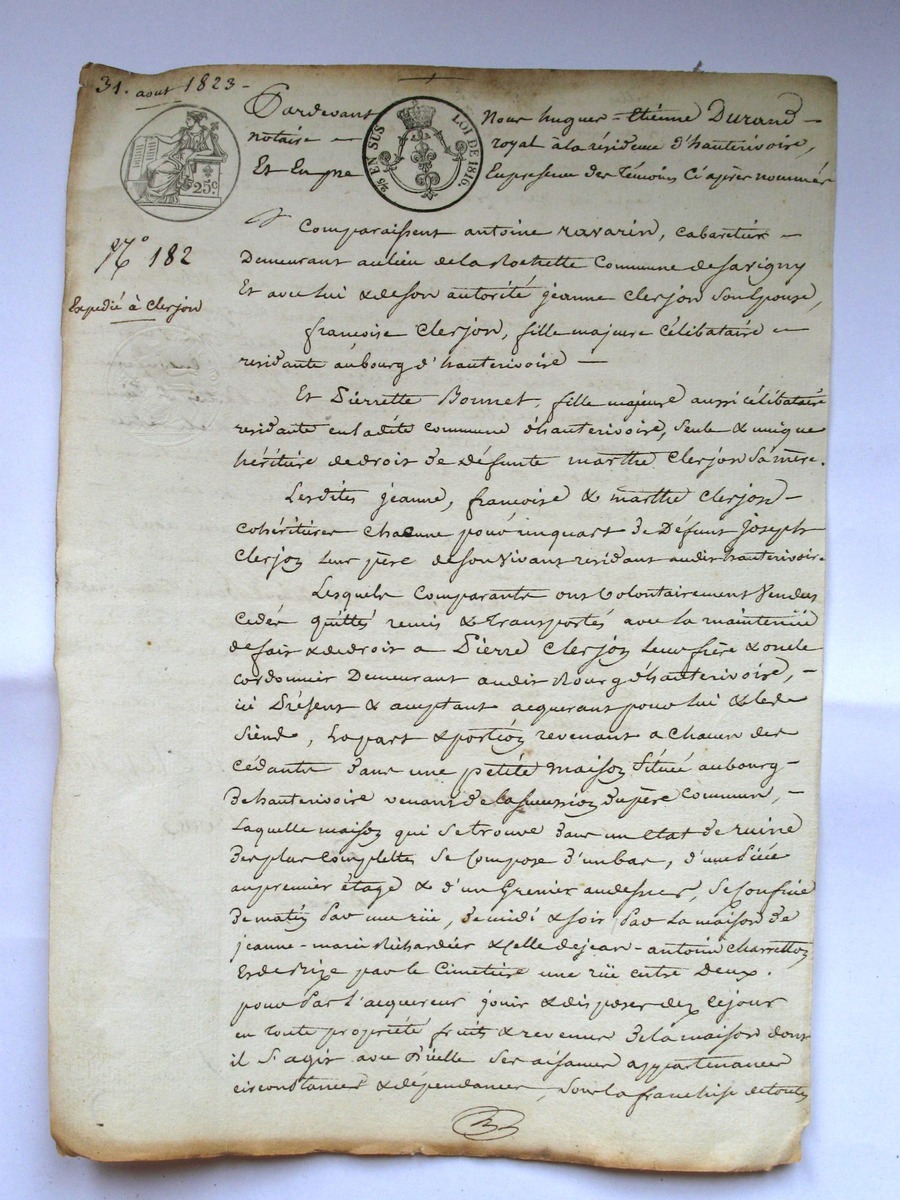 31. aout 1823 -
Pardevant Nous hugues - Etienne Durand -
notaire royal à la résidence d'hauterivoire,
Et En pre En presence des témoins Ci après nommés
25c
2/5 EN SUS LOI DE 1816.
N° 182
Expedié à Clerjon
Comparaissent antoine ravarin, cabaretier -
Demeurant au lieu de la Rochette Commune de savigny
Et avec lui & de son autorité jeanne Clerjon Son Epouse,
françoise Clerjon, fille majeure Célibataire
residante au bourg d'hauterivoire -
Et Pierrette Bonnet, fille majeure aussi célibataire
residante en ladite commune d'hauterivoire, Seule & unique
héritière de droit de défunte marthe Clerjon Sa mère.
Lesdites jeanne, françoise & marthe Clerjon -
cohéritières chacune pour un quart de Défunt Joseph
Clerjon leur père de son vivant residant audit hauterivoire.
Lesquels Comparants ont volontairement Vendus
Cedés quittés remis & transportés avec la maintenüe
de fait & de droit a Pierre Clerjon leur frère & oncle
cordonnier Demeurant audit Bourg d'hauterivoire, -
ici Présent & acceptant acquerant pour lui & les
Siens, la part & portion revenant a Chacun des
Cédants dans une petite maison Située au bourg -
de hauterivoire venant de la succession du père Commun, -
Laquelle maison qui se trouve dans un Etat de ruine
des plus Complettes Se Compose d'un bas, d'une Pièce
au premier étage & d'un Grenier au dessus, Se confine
de matin Par une rüe, de midi & soir Par La maison de
jeanne - marie Richardier & celle de jean - antoine Charretton
Et de Bize par le Cimetière une rüe entre Deux.
pour Par l'acquereur jouir & disposer dez Ce jour
en toute propriété fruits & revenus de la maison dont
il S'agit avec d'icelle Ses aisances appartenances
circonstances & dépendances, Sous la franchise de toute